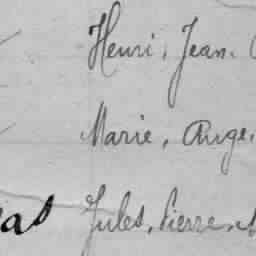 Henri, Jean.
Marie, Ange.
as Jules, Pierre,